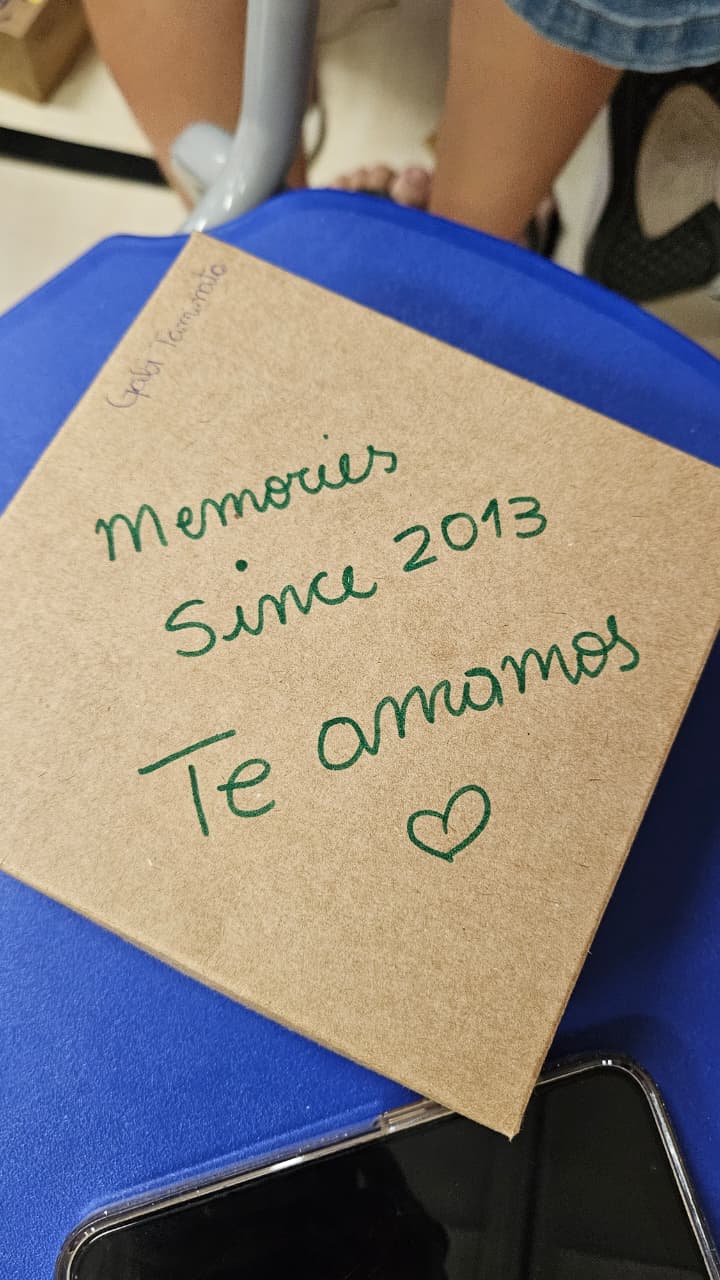 Gabi Tamurato
Memories
Since 2013
Te amamos